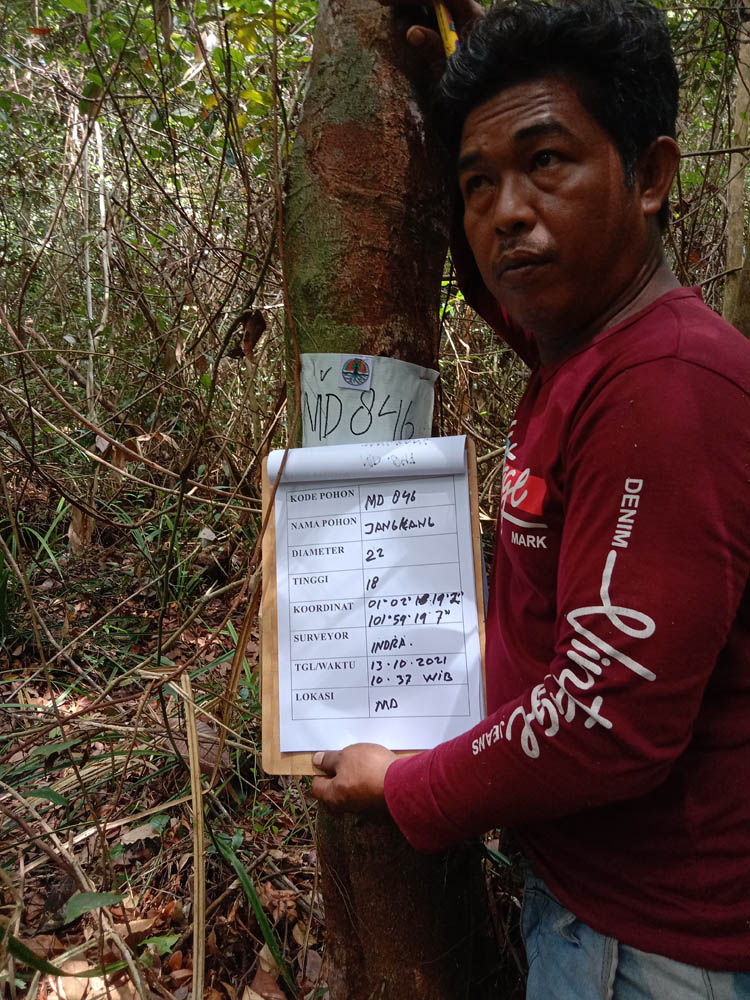 MD 846
KODE POHON MD 846
NAMA POHON JANGKANG
DIAMETER 22
TINGGI 18
KOORDINAT 01° 02'
101° 59' 19' 7"
SURVEYOR INDRA.
TGL/WAKTU 13.10.2021
10.37 WIB
LOKASI MD
MARK
DENIM
Vintage
JEANS